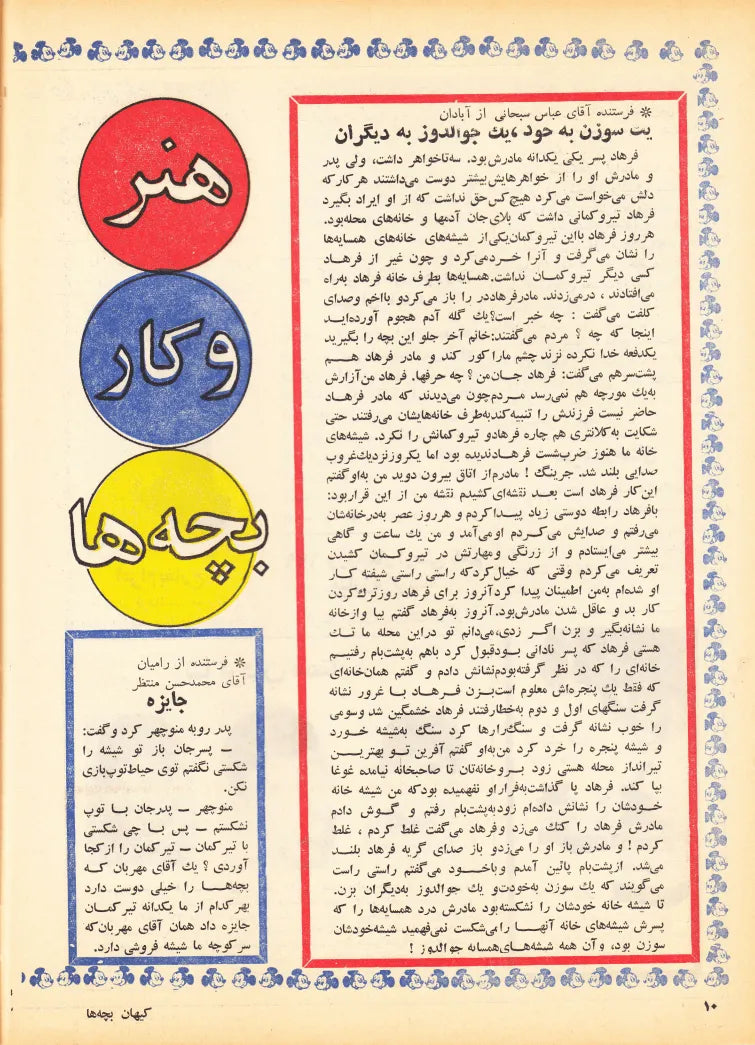 هنر
و کار
بچه‌ها
✻ فرستنده آقای عباس سبحانی از آبادان
یک سوزن به خود ،یک جوالدوز به دیگران
فرهاد پسر یکی یکدانه مادرش‌بود. سه‌تاخواهر داشت، ولی پدر
و مادرش او را از خواهرهایش‌بیشتر دوست می‌داشتند هرکارکه
دلش می‌خواست می‌کرد هیچ‌کس‌حق نداشت که از او ایراد بگیرد
فرهاد تیروکمانی داشت که بلای‌جان آدمها و خانه‌های محله‌بود.
هرروز فرهاد بااین تیروکمان‌یکی‌از شیشه‌های خانه‌های همسایه‌ها
را نشان می‌گرفت و آنرا خـردمی‌کرد و چون غیر از فرهـاد
کسی دیگر تیروکمـان نداشت.همسایه‌ها بطرف خانه فرهاد به‌راه
می‌افتادند ، درمی‌زدند. مادرفرهاددر را باز می‌کردو بااخم وصدای
کلفت می‌گفت : چه خبر است؟یك گله آدم هجوم آورده‌ایـد
اینجا که چه ؟ مردم می‌گفتند:خانم آخر جلو این بچه را بگیرید
یکدفعه خدا نکرده نزند چشم ماراکور کند و مادر فرهاد هـم
پشت‌سرهم می‌گفت: فرهاد جـان‌من ؟ چه حرفها. فرهاد من‌آزارش
به‌یك مورچه هم نمی‌رسد مـردم‌چون می‌دیدند که مادر فرهـاد
حاضر نیست فرزندش را تنبیه‌کندبه‌طرف خانه‌هایشان می‌رفتند حتی
شکایت به‌کلانتری هم چاره فرهادو تیروکمانش را نکرد. شیشه‌های
خانه ما هنوز ضرب‌شست فرهـادندیده بود اما یکروزنزدیك‌غروب
صدایی بلند شد. جرینگ ! مادرم‌از اتاق بیرون دوید من به‌اوگفتم
این‌کار فرهاد است بعـد نقشه‌ای‌کشیدم نقشه من از این قراربود:
بافرهاد رابطه دوستی زیاد پیـداکردم و هرروز عصر به‌درخانه‌شان
می‌رفتم و صدایش می‌کـردم اومی‌آمد و من یك ساعت و گاهی
بیشتر می‌ایستادم و از زرنگی ومهارتش در تیروکمـان کشیدن
تعریف می‌کردم وقتی که خیال‌کردکه راستی راستی شیفته کـار
او شده‌ام به‌من اطمینان پیدا کردآنروز برای فرهاد روزترك‌کردن
کار بد و عاقل شدن مادرش‌بود.آنروز به‌فرهاد گفتم بیا وازخانه
ما نشانه‌بگیر و بزن اگـر زدی،می‌دانم تو دراین محله ما تـك
هستی فرهاد که پسر نادانی بـودقبول کرد باهم به‌پشت‌بام رفتیـم
خانه‌ای را که در نظر گرفته‌بودم‌نشانش دادم و گفتم همان‌خانه‌ای
که فقط یك پنجره‌اش معلوم است‌بـزن فرهـاد بـا غرور نشانه
گرفت سنگهای اول و دوم به‌خطارفتند فرهاد خشمگین شد وسومی
را خوب نشانه گرفت و سنگ‌رارها کرد سنگ به‌شیشه خـورد
و شیشه پنجره را خرد کرد من‌به‌او گفتم آفرین تـو بهتریـن
تیرانداز محله هستی زود بـروخانه‌تان تا صاحبخانه نیامده غوغا
بپا کند. فرهاد پا گذاشت‌به‌فراراو نفهمیده بودکه من شیشه خانه
خـودشان را نشانش داده‌ام زودبه‌پشت‌بام رفتم و گـوش دادم
مادرش فرهاد را کتك می‌زد وفرهاد می‌گفت غلط کردم ، غلط
کردم ! و مادرش باز او را می‌زدو باز صدای گریه فرهاد بلنـد
می‌شد. ازپشت‌بام پائین آمدم وباخـود می‌گفتم راستی راست
می‌گویند که یك سوزن به‌خودت‌و یك جوالدوز به‌دیگران بزن.
تا شیشه خانه خودشان را نشکسته‌بود مادرش درد همسایه‌ها را که
پسرش شیشه‌های خانه آنهـا رامی‌شکست نمی‌فهمید شیشه‌خودشان
سوزن بود، وآن همه شیشه‌هـای‌همسایه جوالدوز !
✻ فرستنده از رامیان
آقای محمدحسن منتظر
جایزه
پدر روبه منوچهر کرد وگفت:
ــ پسرجان باز تو شیشه را
شکستی نگفتم توی حیاط‌توپ‌بازی
نکن.
منوچهر ــ پدرجان بـا توپ
نشکستم ــ پس بـا چی شکستی
با تیرکمان ــ تیرکمان را ازکجا
آوردی ؟ یك آقای مهربان کـه
بچه‌هـا را خیلی دوست دارد
بهرکدام از ما یکدانه تیرکمـان
جایزه داد همان آقای مهربان‌که
سرکوچه ما شیشه فروشی دارد.
کیهان بچه‌ها
۱۰